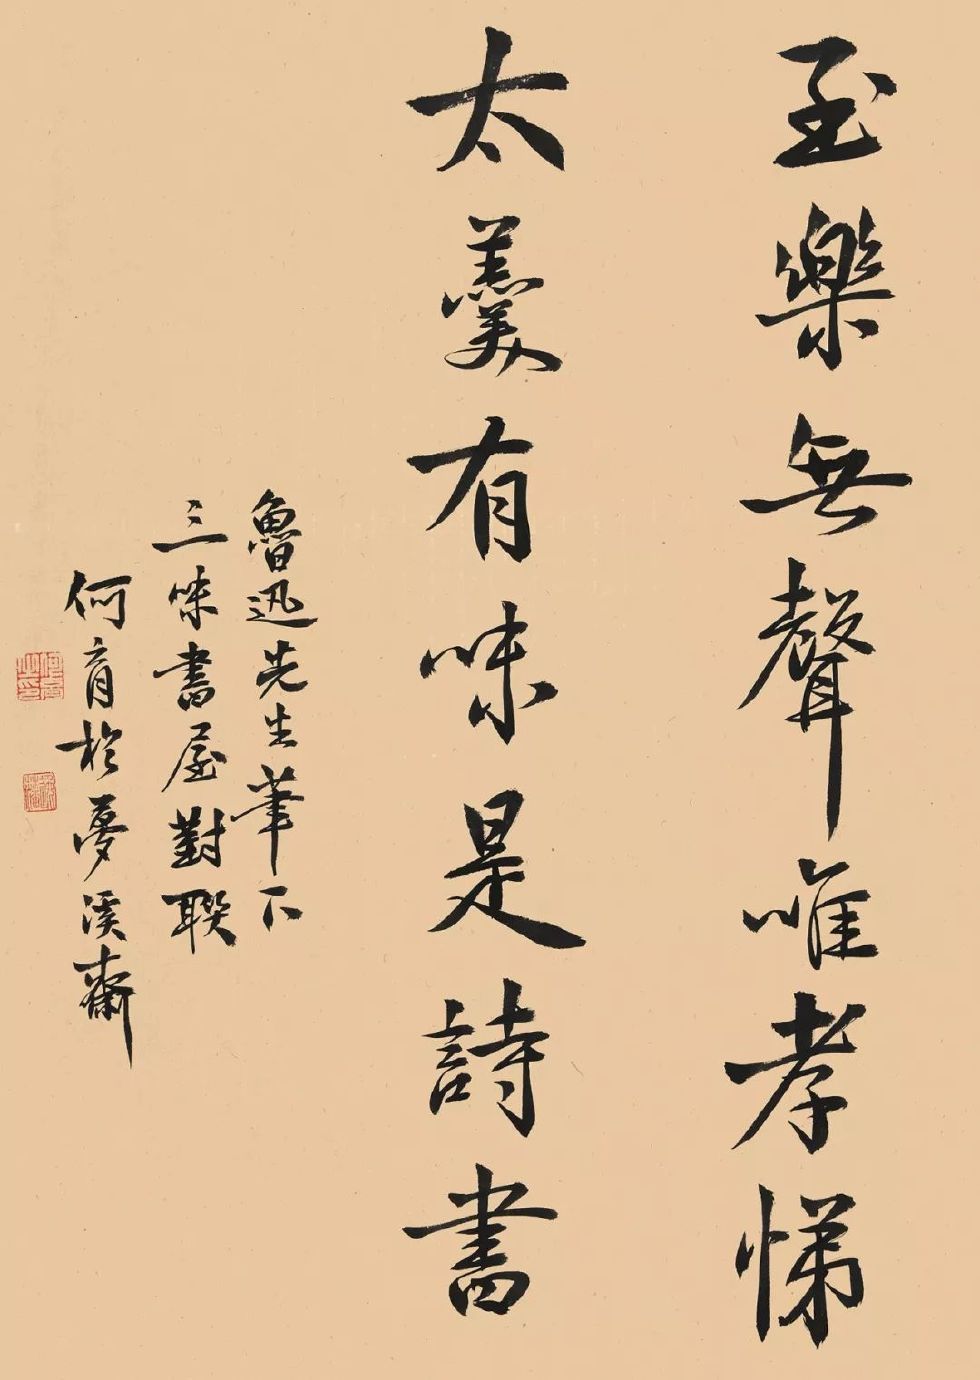 至樂無聲唯孝悌
太羹有味是詩書
魯迅先生筆下
三味書屋對聯
何育於夢溪齋